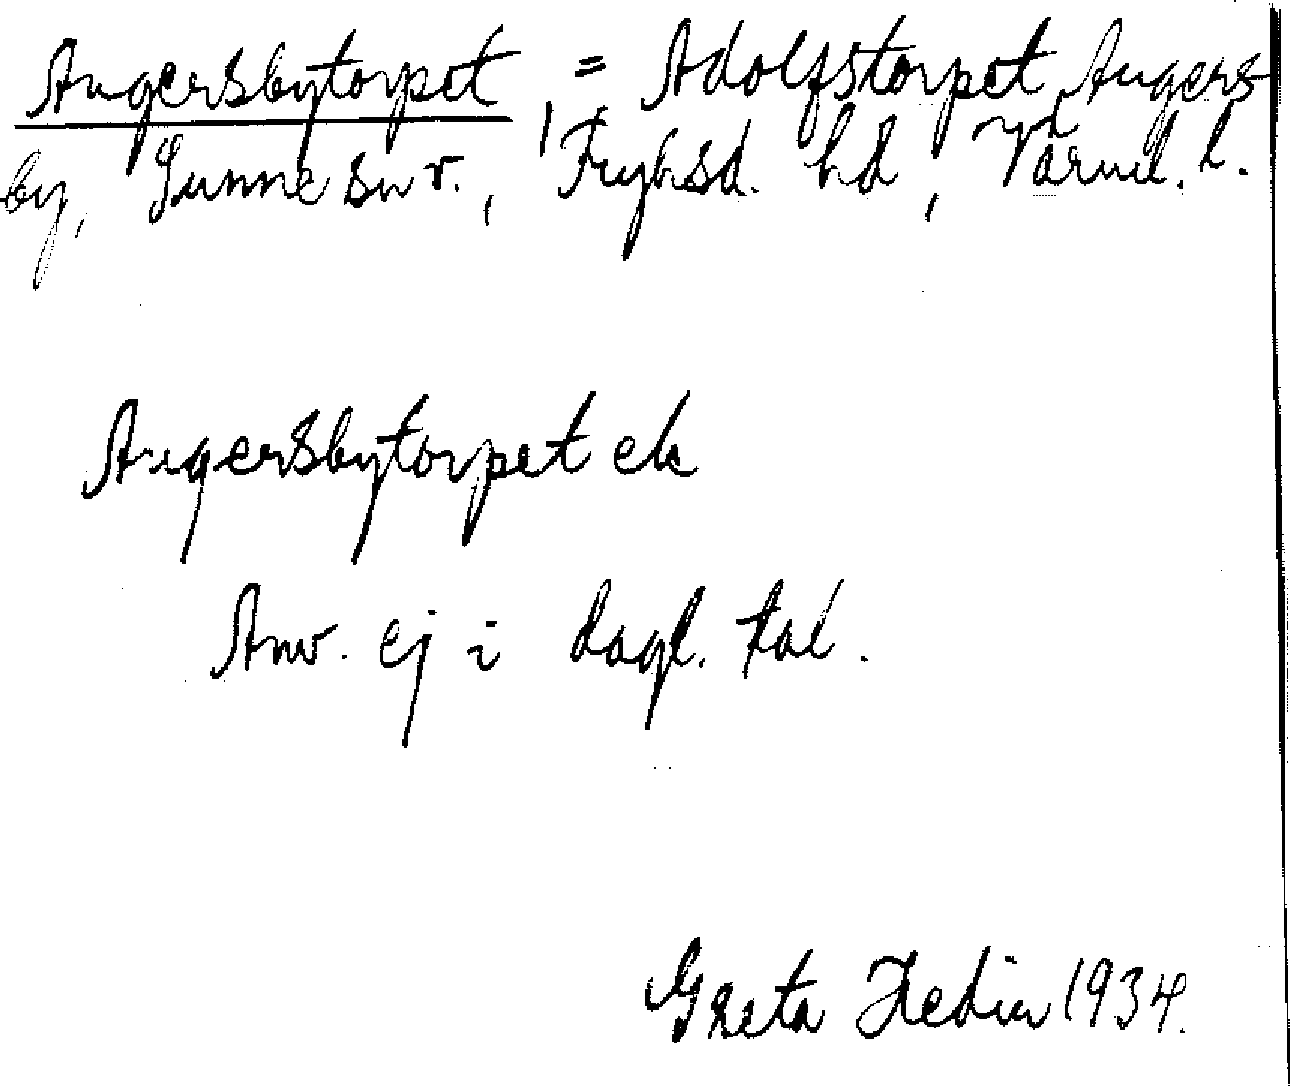 Angersbytorpet, = Adolfstorpet, Angers-
by, Sunne snr., Fryksd. hd, Värml. l.
Angersbytorpet ek
Anv. ej i dagl. tal.
Greta Hedin 1934.